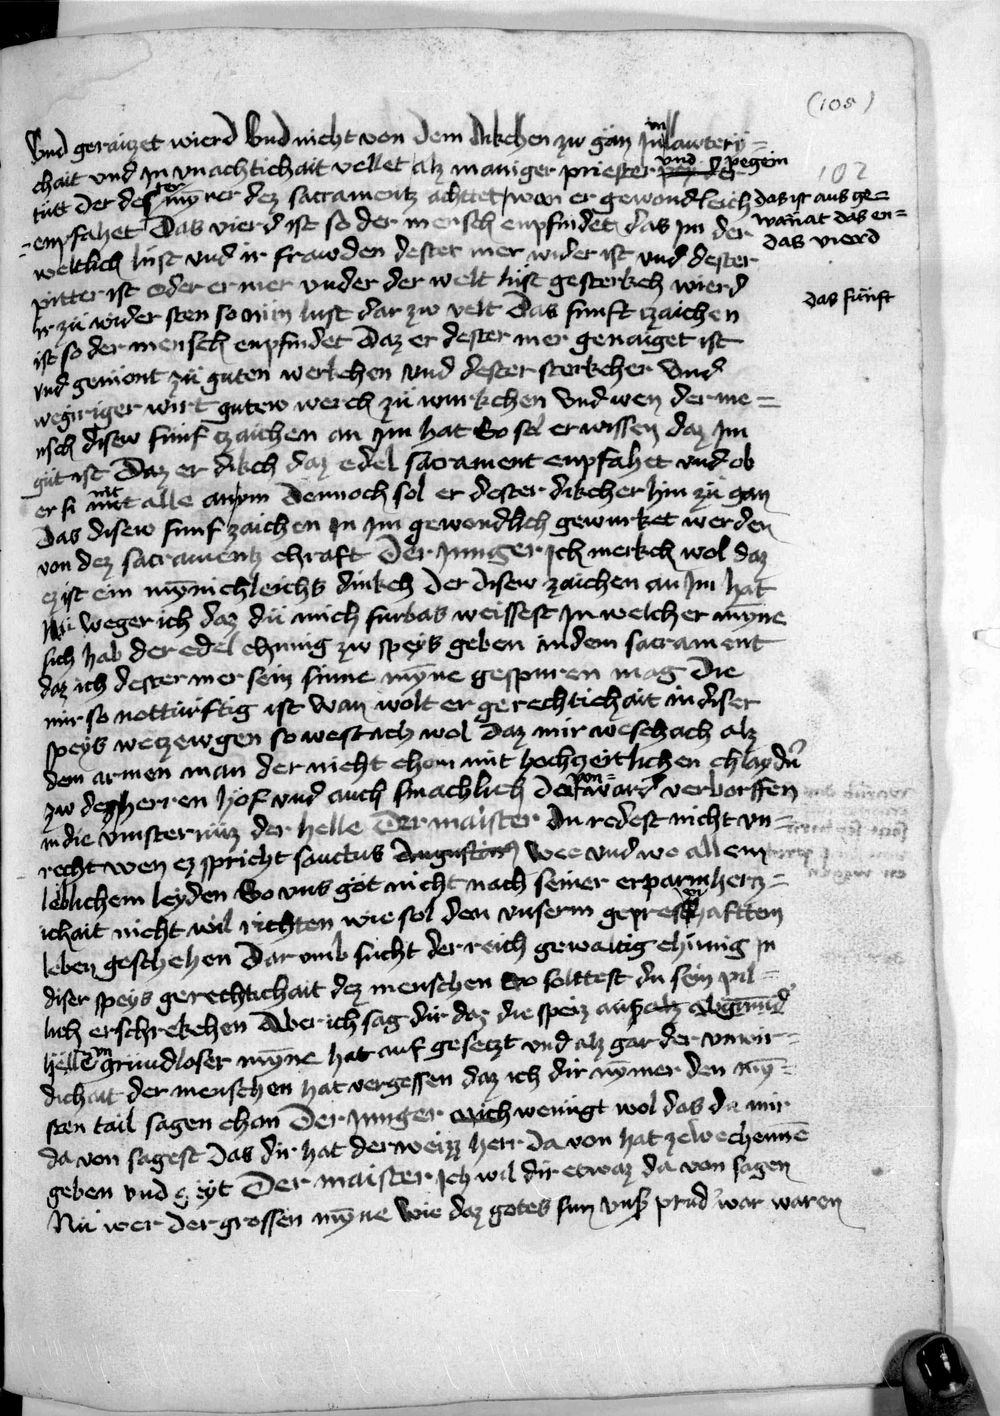 (105)
102
Vnd geraitzet wierd Vnd nicht von dem dikchen zw gan Jn vnlawtery=
chait vnd Jn vnachtichait vellet alz maniger priester vnd pegein
tuet Der dester mynner dez sacramentz achttet wan er gewondleich
enpfahet Das vierd ist so der mensch enpfindet das Jm der
weltlich lust vnd ir frawden dester mer wider ist vnd dester
pitter ist Oder er mer vnder der welt lust gesterkch wierd
ir zu wider sten so mün lust dar zw velt Das funft tzaichen
ist so der mensch enpfindet Daz er dester mer genaiget ist
vnd gemont zu guten werkchen vnd dester sterkcher Vnd
wegiriger wirt gutew werch zu wurkchen Vnd wen der me=
nsch disew funf tzaichen an Jm hat So sol er wissen daz Jm
gut ist Daz er dikch daz edel sacrament enpfahet vnd ob
er si nit alle an ym Dennoch sol er dester dikcher hin zu gan
Das disew funf zaichen Jn Jm gewondlich gewurket werden
von dez sacramentz chraft Der Junger Jch merkch wol daz
ez ist ein mynichleichs dinkch Der disew zaichen an Jm hat
Nu weger ich daz du mich furbas weissest Jn welcher myne
sich hab der edel chunig zw speys geben in dem sacrament
daz ich dester mer sein sinne myne gespuren mag Die
mir so notturftig ist Wan wolt er gerechtichait in diser
speys wetzewgen so west ich wol Daz mir weschach alz
dem armen man der nicht chom mit hochzeitlichen chlaydn
zw dez herren hof vnd auch smachlich Da von ward verborffen
in die vinsternüz der helle Der maister Du redest nicht vn=
recht wen ez spricht sanctus Augustin wee vnd we allem
loblichem leyden So vns got nicht nach seiner erparmhertz=
ichait nicht wil richten wie sol den vnserm geprechafftem
leben geschehen Dar vmb sucht der reich gewaltig chunig Jn
diser speys gerechtichait dez menschen So solttest du sein pil=
lich erschrekchen Aber ich sag dir daz die speiz auss abgrund
grundloser myne hat auf gesetzt vnd alz gar der vnwir=
dichait der menschen hat vergessen daz ich dir nymer den myn=
sten tail sagen chan Der Junger mich wenugt wol das du mir
da von sagest Das dir hat der weizz herr Da von hat ze wechenne
geben vnd geyt Der maister Jch wil dir etwaz da von sagen
Nu wer der grossen myne Wie daz gotes sun vnss prud' war waren
Das ist aus ge=
das vierd
das funft